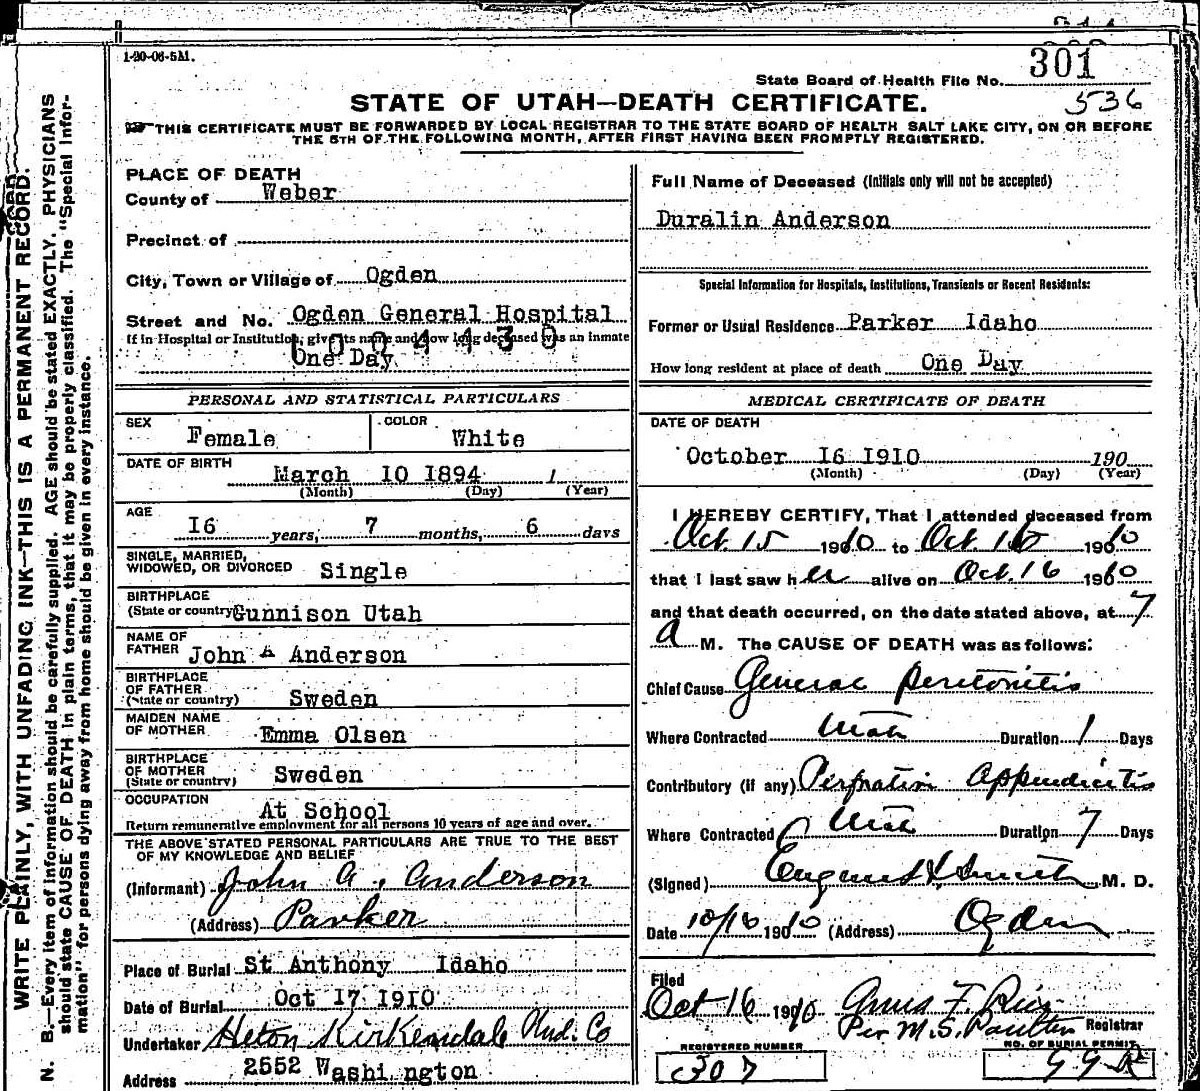 1-20-06-5M.
301
State Board of Health File No.
536
STATE OF UTAH—DEATH CERTIFICATE.
THIS CERTIFICATE MUST BE FORWARDED BY LOCAL REGISTRAR TO THE STATE BOARD OF HEALTH SALT LAKE CITY, ON OR BEFORE
THE 5TH OF THE FOLLOWING MONTH, AFTER FIRST HAVING BEEN PROMPTLY REGISTERED.
WRITE PLAINLY, WITH UNFADING INK—THIS IS A PERMANENT RECORD.
N. B.—Every item of information should be carefully supplied. AGE should be stated EXACTLY. PHYSICIANS
should state CAUSE OF DEATH in plain terms, that it may be properly classified. The "Special Infor-
mation" for persons dying away from home should be given in every instance.
PLACE OF DEATH
County of Weber
Precinct of
City, Town or Village of Ogden
Street and No. Ogden General Hospital
If in Hospital or Institution, give its name and how long deceased was an inmate
One Day
PERSONAL AND STATISTICAL PARTICULARS
SEX Female COLOR White
DATE OF BIRTH March 10 1894 1
(Month) (Day) (Year)
AGE 16 years, 7 months, 6 days
SINGLE, MARRIED,
WIDOWED, OR DIVORCED Single
BIRTHPLACE
(State or country) Gunnison Utah
NAME OF
FATHER John A Anderson
BIRTHPLACE
OF FATHER
(State or country) Sweden
MAIDEN NAME
OF MOTHER Emma Olsen
BIRTHPLACE
OF MOTHER
(State or country) Sweden
OCCUPATION At School
Return remunerative employment for all persons 10 years of age and over.
THE ABOVE STATED PERSONAL PARTICULARS ARE TRUE TO THE BEST
OF MY KNOWLEDGE AND BELIEF
(Informant) John A. Anderson
(Address) Parker
Place of Burial St Anthony Idaho
Date of Burial Oct 17 1910
Undertaker Kirkendale Und. Co
Address 2552 Washington
Full Name of Deceased (Initials only will not be accepted)
Duralin Anderson
Special Information for Hospitals, Institutions, Transients or Recent Residents:
Former or Usual Residence Parker Idaho
How long resident at place of death One Day
MEDICAL CERTIFICATE OF DEATH
DATE OF DEATH
October 16 1910 190
(Month) (Day) (Year)
I HEREBY CERTIFY, That I attended deceased from
Oct. 15 1910 to Oct. 16 1910
that I last saw her alive on Oct. 16 1910
and that death occurred, on the date stated above, at 7
a M. The CAUSE OF DEATH was as follows:
Chief Cause General peritonitis
Where Contracted Utah Duration 1 Days
Contributory (if any) Perforation Appendicitis
Where Contracted Utah Duration 7 Days
(Signed) Smith M. D.
Date 10/16 1910 (Address) Ogden
Filed
Oct 16 1910
Per M.S. Poulter Registrar
REGISTERED NUMBER
307
NO. OF BURIAL PERMIT